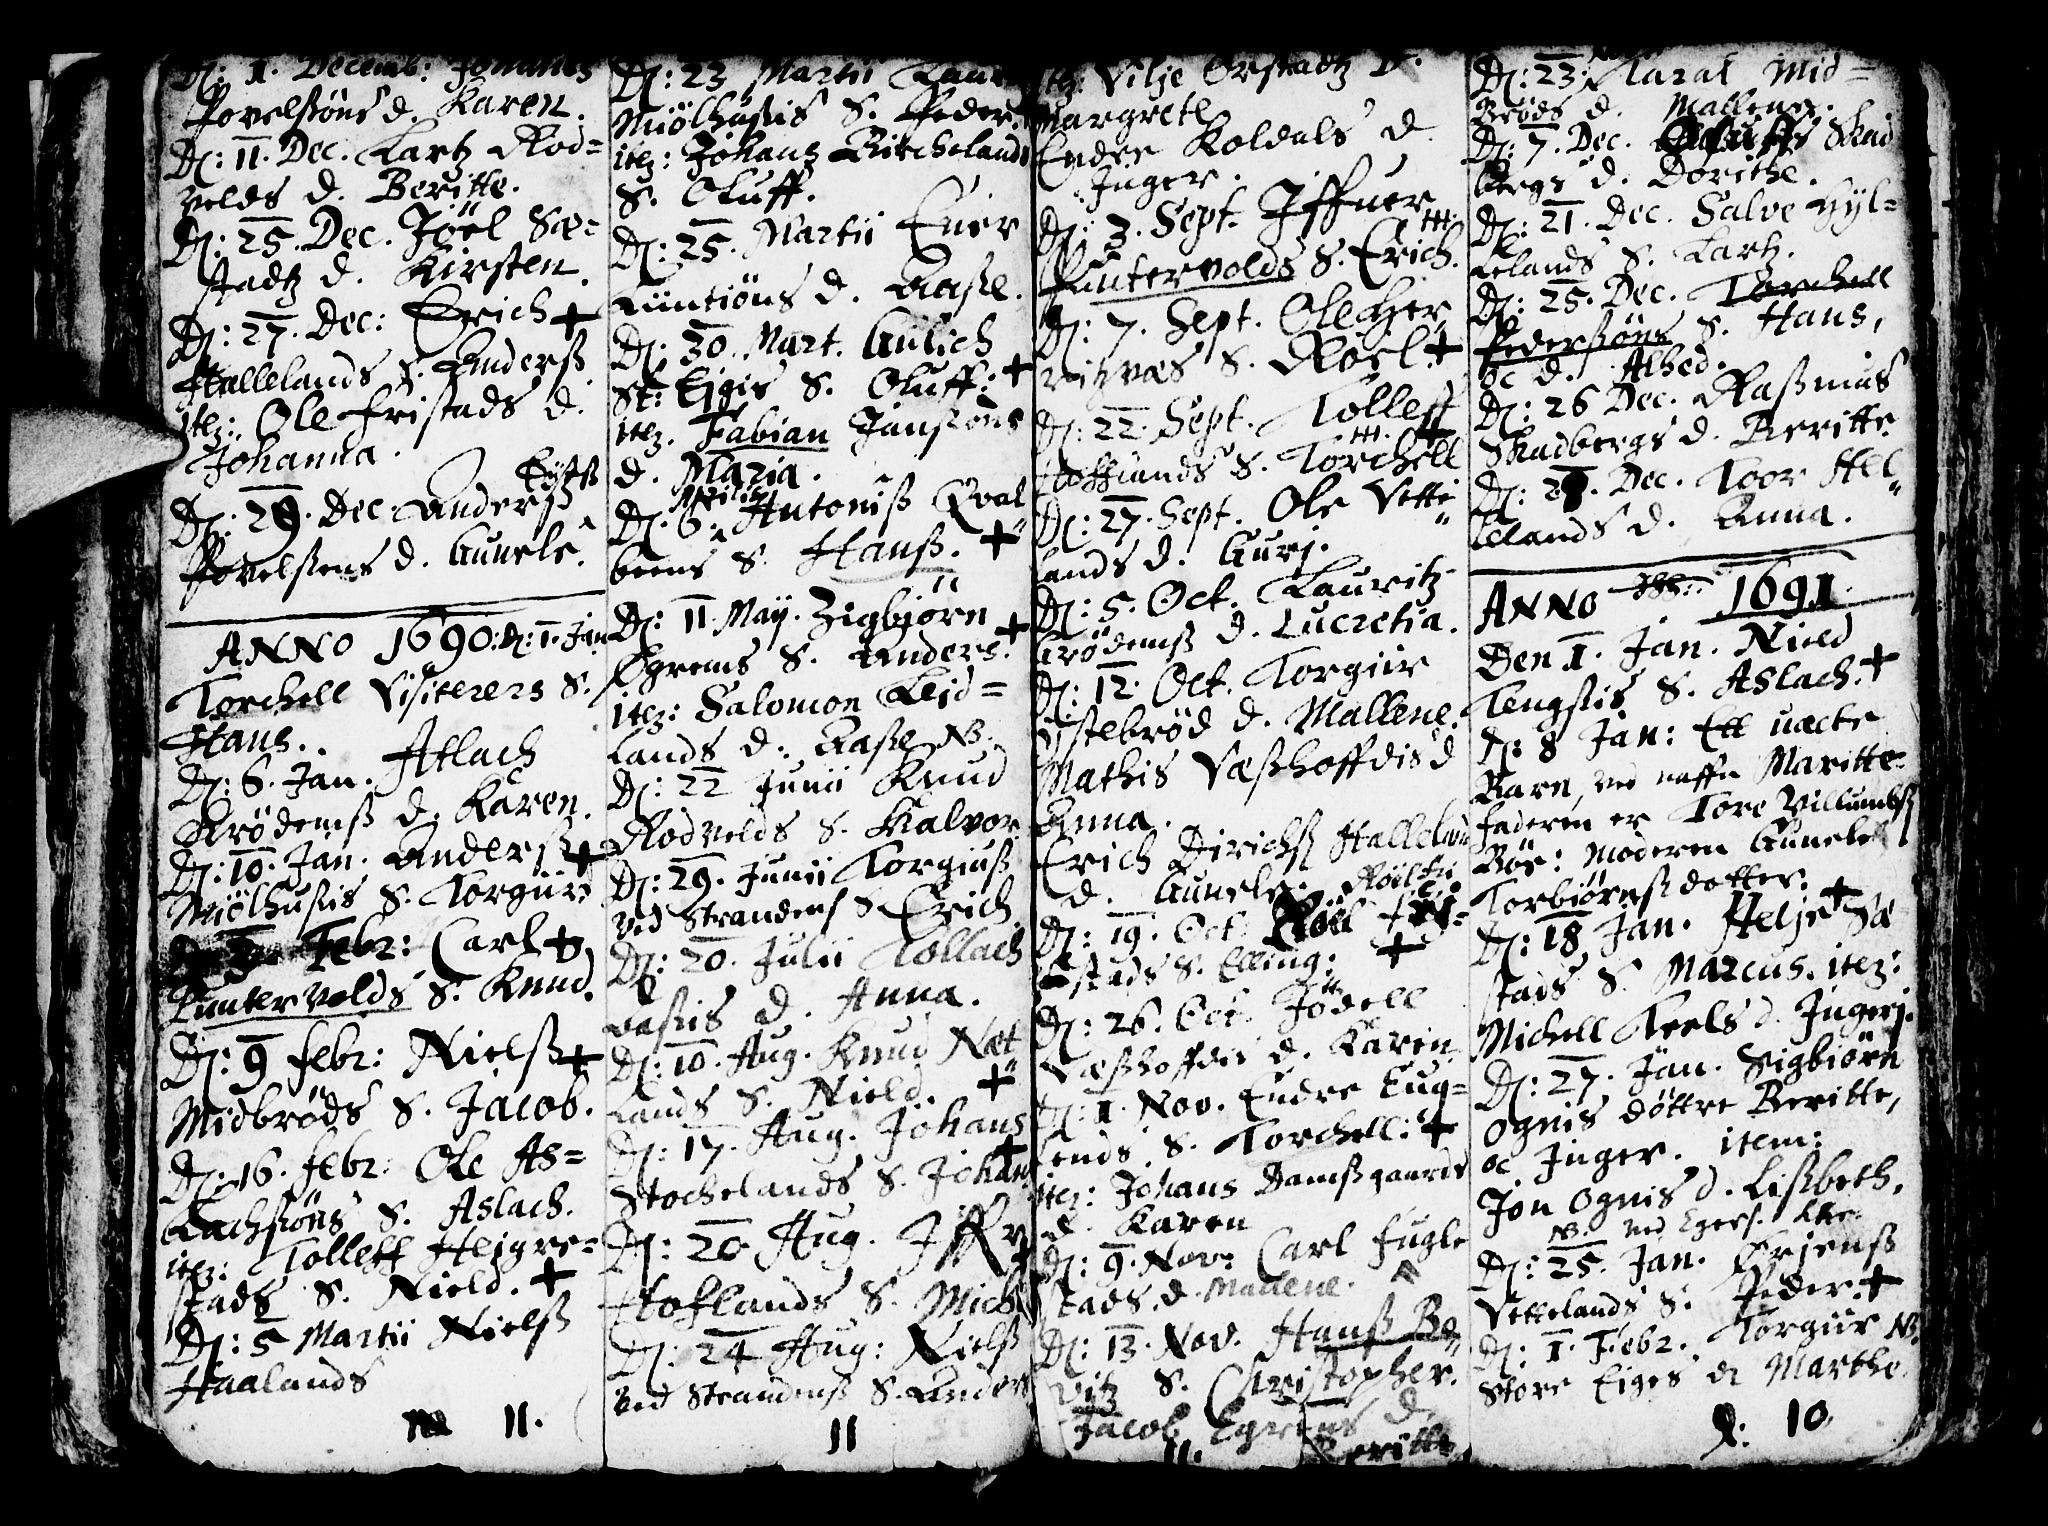 D: 1. Decemb: Johannes
Povelsøns d. Karen.
D: 11. Dec. Lartz Rod=
velds d. Beritte.
D: 25. Dec. Jöel Sæ=
stadtz d. Kirsten.
D: 27. Dec: Erich +
Hallelands S. Anderß
itez: Ole Fristads d.
Johanna.
D: 29. Dec. Anderß
Povelsens d. Gunele.
ANNO 1690. D: 1. Jan
Torchell Visiterers S.
Hans.
D: 6. Jan. Atlach
Krödemß d. Karen.
D: 10. Jan. Anderß +
Miölhusis S. Torgiir
Febr: Carl +
Puntervolds S. Knud.
D: 9 Febr: Nielß +
Midbrøds S. Jacob.
D: 16. Febr. Ole As=
Lachsöns S. Aslach.
itez: Tolleff Hejgre=
stads S. Nield. +
D: 5 Martii Nielß
Haalands
11.
D: 23 Martii
Miölhusis S. Peder.
itez: Johans Birchelands
S. Oluff.
D: 25. Martii Ener
d. Aaße.
D: 30. Mart. Gulich
St: Ejgis S. Oluff: +
itez. Fabian Jansøns
d. Maria.
Aprilis
D: 6. Antoniß Qval
beens S. Hanß. +
D: 11. May. Zigbjörn +
Egrems S. Anders.
itez: Salomon Leid=
lands d. Aaße NB.
D: 22 Junii Knud
Rodvelds S. Halvor.
D: 29. Junii Torgiuß
ved Strandens S Erich
D: 20. Julii Tollach
d. Anna.
D: 10. Aug. Knud Næt
lands S. Nield. +
D: 17. Aug. Johans +
Stochelands S. Johan
D: 20 Aug. Iffver +
Hoflands S. Mich
D: 24 Aug: Nielß
ved Strandenß S. Anders
11
itez: Silje Örstadtz d.
Margrete
Endre Koldals d.
Inger.
D: 3. Sept. Iffuer
Puntervolds S. Erich.
D: 7. Sept. Ole Her
S. Roel. +
D: 22. Sept. Tolleff
S. Torchell
D: 27. Sept. Ole Vette
lands d. Guri.
D: 5. Oct. Lauritz
Krödemß d. Lucretia.
D: 12. Oct. Torgiir
Ystebröd d. Mallene.
Mathis Væßhoffdis d
Anna.
Erich Dirichs Halleland
d. Gunele.
D: 19. Oct. Röel
stads S. Elling: +
D: 26. Oct. Jödell
Væßhoffdis d. Karen
D: 1. Nov. Endre Eug=
lends S. Torchell. +
itez: Johans Damsgaards
d. Karen
D: 9. Nov: Carl Fugle
stads d. Mallene.
D: 13. Nov. Hanß Bo
vitz S. Christopher.
Jacob Egrems d.
11. Beritte
D: 23. Tarал Mid=
Brøds d. Mallene.
D: 7. Dec. Skad
bergs d. Dorithe.
D: 21. Dec. Salve Hÿl=
lelands S. Lartz.
D: 25. Dec. Torchell
Pedersøns S. Hans,
oc d. Alhed.
D: 26 Dec. Raßmus
Skadbergs d. Beritte
D: 28. Dec. Toor Hel
lelands d. Anna.
ANNO 1691.
Den 1. Jan. Nield
Tengsis S. Aslach. +
D: 8 Jan: Ett uæcte
Barn, ved naffn Maritte
faderen er Tore Villumbß
Böe: Moderen Gunele
Torbiørnsdotter.
D: 18 Jan. Helje Sæ +
stads S. Marcus. itez:
Michell Teels d. Ingerj.
D: 27. Jan. Sigbiørn
Ognis döttre Beritte,
oc Inger. item:
Jon Ognis d. Lisbeth.
NB. ved Egers.
D: 25. Jan. Örjenß
Vettelands S. Peder. +
D: 1. Febr. Torgiir NB
Store Eiges d Marthe
10